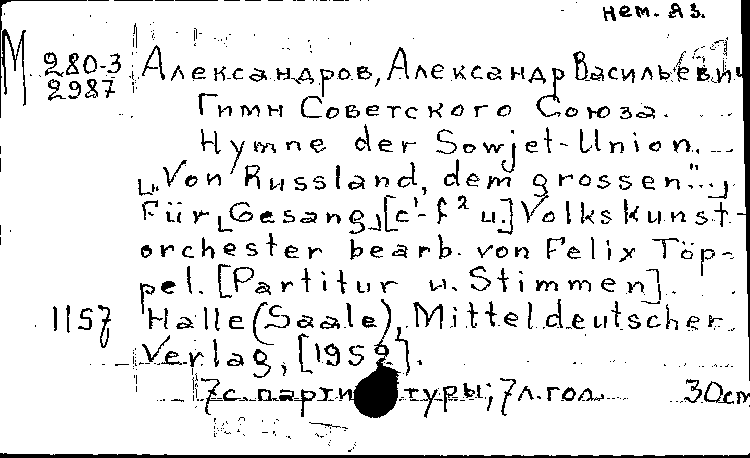 нем. яз.
М 280-3 Александров, Александр Васильевич
2987
Гимн Советского Союза.
Hymne der Sowjet-Union.
[„Von Russland, dem grossen"...]
Für [Gesang] [c¹-f² u.] Volkskunst-
orchester bearb. von Felix Töp-
pel. [Partitur u. Stimmen].
1157 Halle (Saale), Mitteldeutscher
Verlag, [1952].
7с. партитуры; 7л. гол. 30см